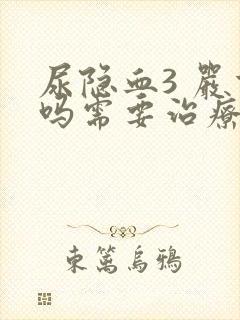 尿隐血3 严
吗需要治療
東篱烏鴉